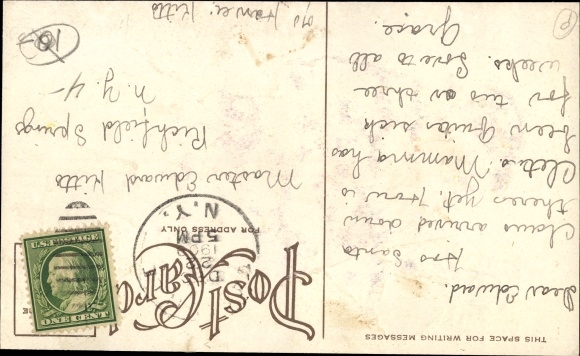 THIS SPACE FOR WRITING MESSAGES
Dear Edward.
Has Santa
Claus arrived down
theres yet. How is
Cletis. Mamma has
been quite sick
for two or three
weeks. Love to all
Grace.
Post Card
FOR ADDRESS ONLY
D
5 PM
N.Y.
U.S. POSTAGE
ONE CENT
Master Edward Kitts
Richfield Springs
N.Y.
Kitts
10-